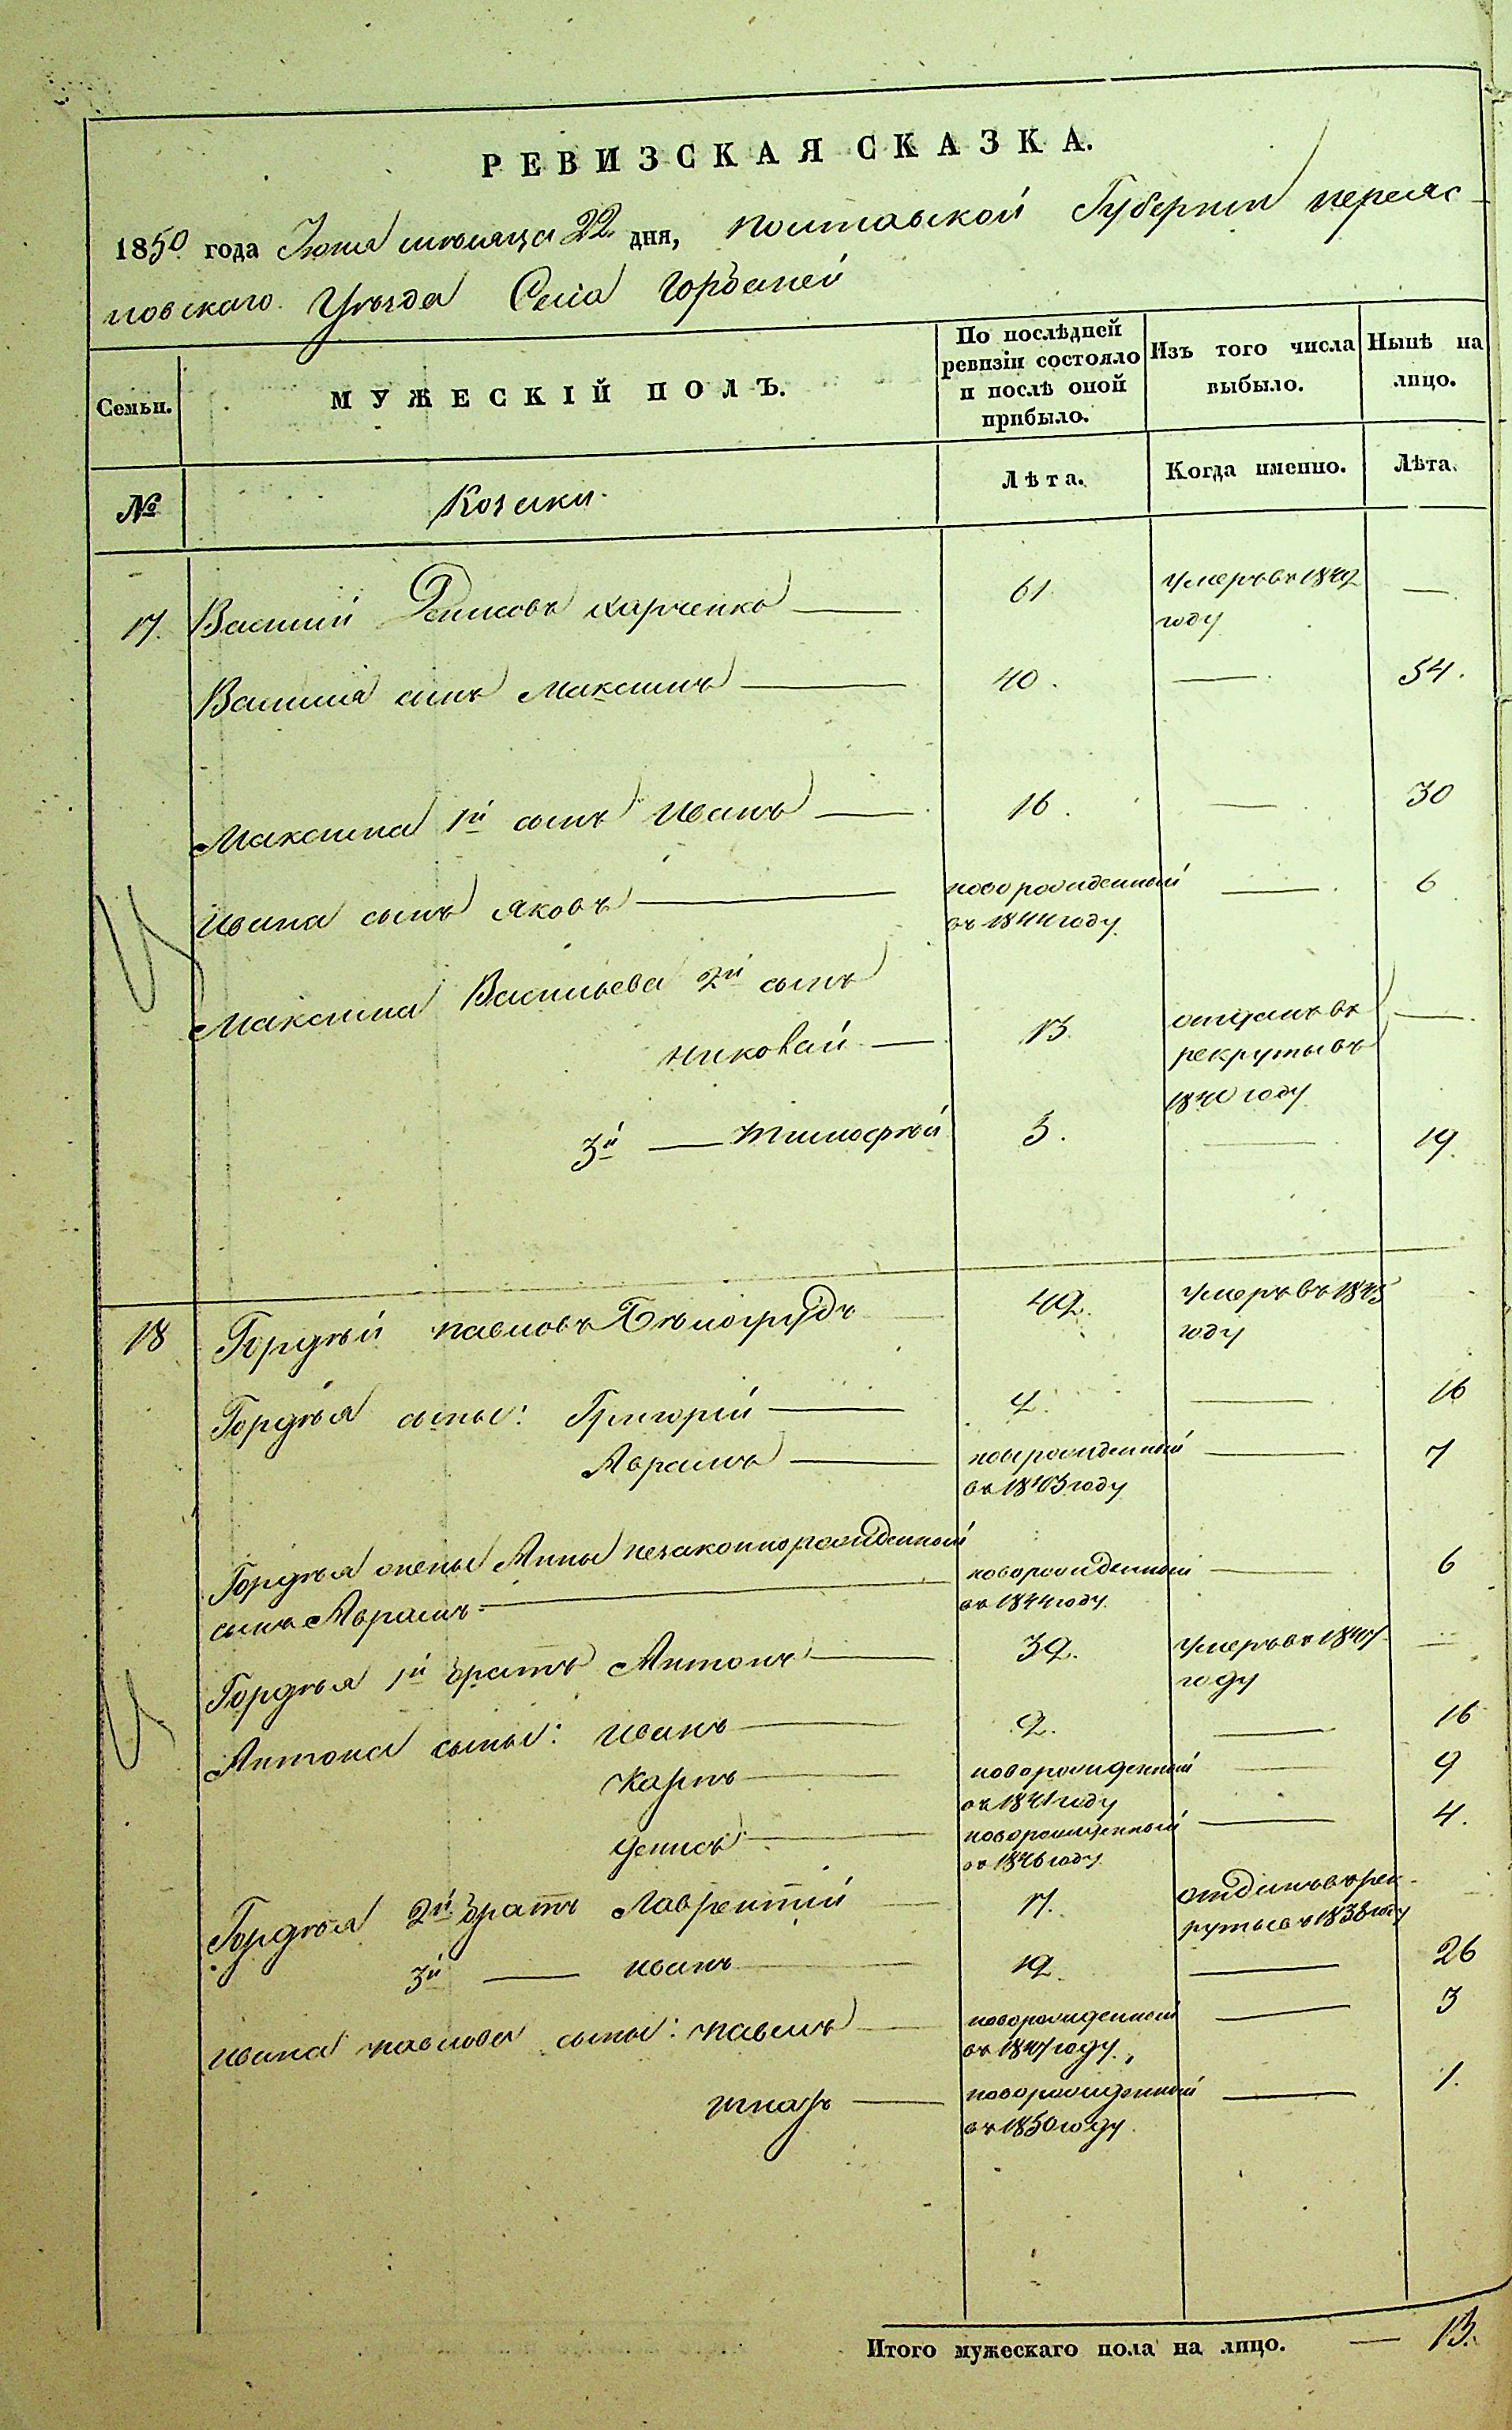 РЕВИЗСКАЯ СКАЗКА.
1850 года Июня месяца 22 дня, Полтавской Губернии Переяс-
лавскаго Уѣзда Села Горбаней
Семьи.
МУЖЕСКІЙ ПОЛЪ.
По послѣдней ревизіи состояло и послѣ оной прибыло.
Изъ того числа выбыло.
Нынѣ на лицо.
№
Козаки.
Лѣта.
Когда именно.
Лѣта.
17. Василий Денисовъ Харченко — 61. умеръ въ 1842 —
году
Василия сынъ Максимъ — 40. — 54.
Максима 1й сынъ Иванъ — 16. — 30
Ивана сынъ Яковъ — новорожденный — 6
въ 1844 году
Максима Васильева 2й сынъ
Николай — 13. отданъ въ —
рекруты въ
1840 году
3й — Тимофѣй 5. — 19.
18 Гордѣй Павловъ Бѣлогрудъ 42. умеръ въ 1845
году
Гордѣя сыны: Григорій — 2. — 16
Аврамъ — новорожденный — 7
въ 1843 году
Гордѣя жены Анны незаконнорожденный
сынъ Аврамъ — новорожденный — 6
въ 1844 году
Гордѣя 1й братъ Антонъ — 32. умеръ въ 1847 —
году
Антона сыны: Иванъ — 2. — 16
Карпъ — новорожденный — 9
въ 1841 году
Денисъ — новорожденный — 4.
въ 1846 году
Гордѣя 2й братъ Лаврентий — 17. отданъ въ рек-
руты въ 1838 году
3й — Иванъ — 12. — 26
Ивана Павлова сыны: Павелъ — новорожденный — 3
въ 1847 году
Игнатъ — новорожденный — 1.
въ 1850 году
Итого мужескаго пола на лицо. — 13.